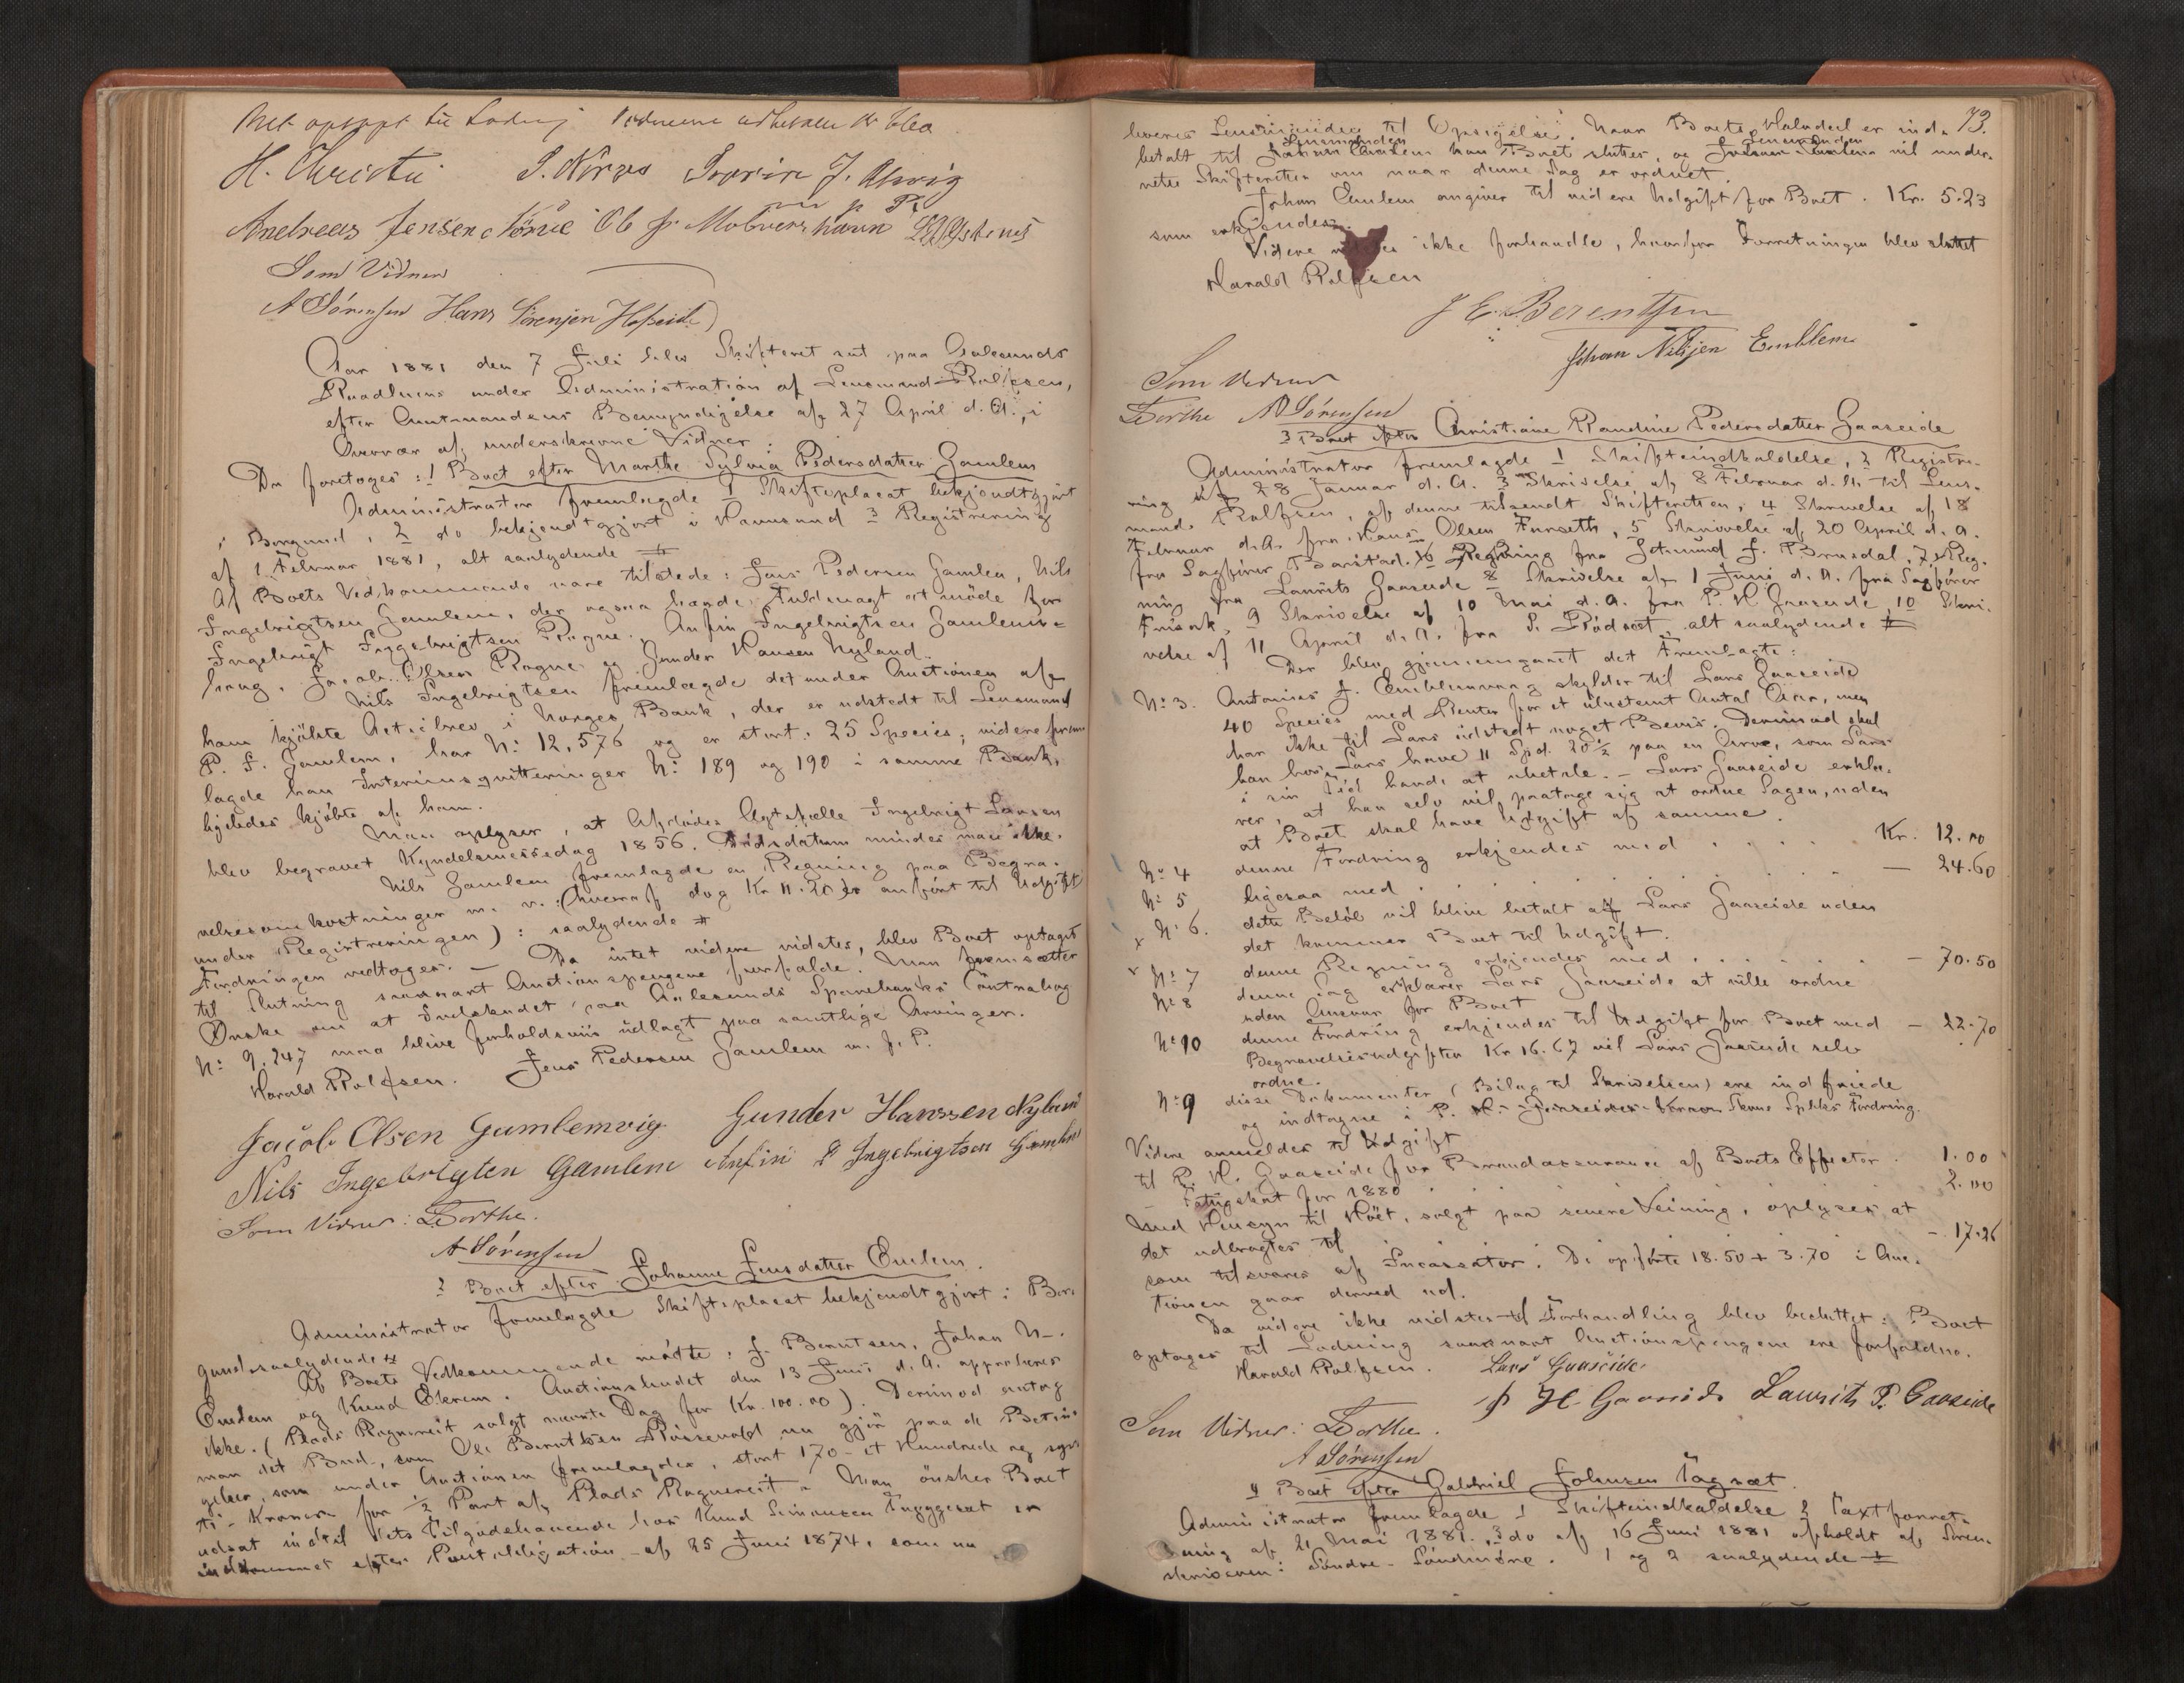 H. Christie S. Nörve J. Alvig
Andreas Jensen Nörve Ole Molvershavn
Som Vidner
A Sörensen Hans Sörensen Hesseide
Aar 1881 den 7 Juli blev Skifteret sat paa Aalesunds
Raadhuus under Administration af Lensmand Rolfsen,
efter Amtmandens Bemyndigelse af 27 April d. A., i
Overvær af underskrevne Vidner:
Da foretoges: 1 Boet efter Marthe Sylvia Pedersdatter Gamlem
Administrator fremlagde 1 Skifteplacat bekjendtgjort
i Borgund, 2 do bekjendtgjort i Hamsund 3 Registrering
af 1 Februar 1881, alt saalydende #
Af Boets Vedkommende vare tilstede: Jens Pedersen Gamlem, Nils
Ingebrigtsen Gamlem, der ogsaa havde Fuldmagt at möde for
Ingebrigt Ingebrigtsen Rogne. Anfin Ingebrigtsen Gamlems-
haug, Jacob Olsen Rogne og Gunder Hansen Nyland.
Nils Ingebrigtsen fremlagde det under Auctionen af
ham kjöbte Actiebrev i Norges Bank, der er udstedt til Lensmand
P. J. Gamlem, har No 12,576 og er stort: 25 Species; videre frem-
lagde han Interimsqvitteringer No 189 og 190 i samme Bank,
ligeledes kjöbte af ham.
Man oplyser, at Afdödes Ægtefælle Ingebrigt Larsen
blev begravet Kyndelsmessedag 1856. Dödsdatum mindes man ikke.
Nils Gamlem fremlagde en Regning paa Begra-
velsesomkostninger m. v. (hvoraf dog Kr 11.20 er anfört til Udgift
under Registreringen): saalydende #
Fordringen vedtages. — Da intet videre vidstes, blev Boet optaget
til Slutning saasnart Auctionspengene forfalde. Man fremsætter
Önske om at Indskudet paa Aalesunds Sparebanks Contrabog
No 9,247 maa blive forholdsviis udlagt paa samtlige Arvinger.
Harald Rolfsen. Jens Pedersen Gamlem m. f. P.
Jacob Olsen Gamlemvig Gunder Hanssen Nyland
Nils Ingebrigten Gamlem Anfin Ingebrigtsen Gamlem
Som Vidner: Dorthe.
A Sörensen
2 Boet efter Johanne Jensdatter Emlem.
Administrator fremlagde Skifteplacat bekjendtgjort i Bor-
gund saalydende #
Af Boets Vedkommende mödte: J. Berntsen, Johan N-.
Emlem og Knud Ekrem. Auctionsbudet den 13 Juni d. A. approberes
ikke. (Plads Ragnereit solgt nævnte Dag for Kr. 100.00). Derimod antog
man det Bud, som Ole Berntsen nu gjör paa de Betin-
gelser, som under Auctionen fremlagdes, stort 170 – et Hundrede og syv-
ti – Kroner for 1/2 Part af Plads Ragnereit. Man önsker Boet
udsat indtil dets Tilgodehavende hos Knud Simonsen er
inddkommet efter Pantobligation af 25 Juni 1874, som nu
73.
leveres Lensmanden til Opsigelse. Naar Boets Halvdeel er ind-
betalt til Lensmanden kan Boet sluttes, og Lensmanden vil under-
rette Skifteretten om naar denne Sag er ordnet.
Johan Emlem angiver til videre Udgift for Boet. Kr. 5.23
som erkjendes.
Videre ikke forhandle, hvorfor Forretningen blev sluttet
Harald Rolfsen
J E Berentsen
Johan Nilsjen Emblem
Som Vidner
Dorthe A Sörensen
3 Boet efter Christiane Raudine Pedersdatter Gaaseide
Administrator fremlagde 1 Skifteindkaldelse, 2 Registre-
ring af 28 Januar d. A. 3 Skrivelse af 8 Februar d. A. til Lens-
mand Rolfsen, af denne tilsendt Skifteretten, 4 Skrivelse af 18
Februar d. A. fra Hans Olsen Furseth, 5 Skrivelse af 20 April d. A.
fra Sagförer Barstad. 6 Regning fra Jetmund J. Brusdal, 7 Reg-
ning fra Laurits Gaaseide 8 Skrivelse af 1 Juni d. A. fra Sagförer
Frisak, 9 Skrivelse af 10 Mai d. A. fra P. H. Gaaseide, 10 Skri-
velse af 11 April d. A. fra S. Rödset, alt saalydende #
Der blev gjennemgaaet det Fremlagte:
No 3. Antonius J. Emblemsvaag skylder til Lars Gaaseide
40 Species med Renter for et ubestemt Antal Aar, men
har ikke til Lars udstedt noget Bevis. Derimod skal
han hos Lars have 11 Spd. 20 1/2 paa en Arv, som Lars
i sin Tid havde at ubetale. – Lars Gaaseide erklæ-
rer, at han selv vil paatage sig at ordne Sagen, uden
at Boet skal have Udgift af samme.
No 4 denne Fordring erkjendes med . . . . Kr. 12.00
No 5 ligesaa med . . . . . . — 24.60
No 6. dette Belöb vil blive betalt af Lars Gaaseide uden
det kommer Boet til Udgift.
No 7 denne Regning erkjendes med . . . . . . – 70.50
No 8 denne Sag erklærer Lars Gaaseide at ville ordne
uden Ansvar for Boet
No 10 denne Fordring erkjendes til Udgift for Boet med – 22.70
Begravelsesudgifter Kr 16.67 vil Lars Gaaseide selv
ordne.
No 9 disse Documenter (Bilag til Skrivelsen) ere indfriede
og indtagne i P. H. Fordring.
Videre anmeldes til Udgift
til P. H. Gaaseide for Brandassurance af Boets Effecter . 1.00
– Fattigskat for 1880 . . . . . . 2.00
Med Hensyn til Höet, solgt paa senere Veining, oplyses, at
det udbragtes til – 17.26
som tilsvares af Incassator. De opförte 18.50 + 3.70 i Auc-
tionen gaar derved ud.
Da videre ikke vidstes til Forhandling blev besluttet: Boet
optages til Lodning saasnart Auctionspengene ere forfaldne.
Harald Rolfsen. Lars Gaaseide
P H. Gaaseide Laurits P. Gaaseide
Som Vidner: Dorthe.
A Sörensen
4 Boet efter Gabriel Johnsen Vagnæt.
Administrator fremlagde 1 Skifteindkaldelse 2 Taxtforret-
ning af 21 Mai 1881. 3 do af 16 Juni 1881 afholdt af Soren-
skriveren i Söndre-Söndmöre. 1 og 2 saalydende #